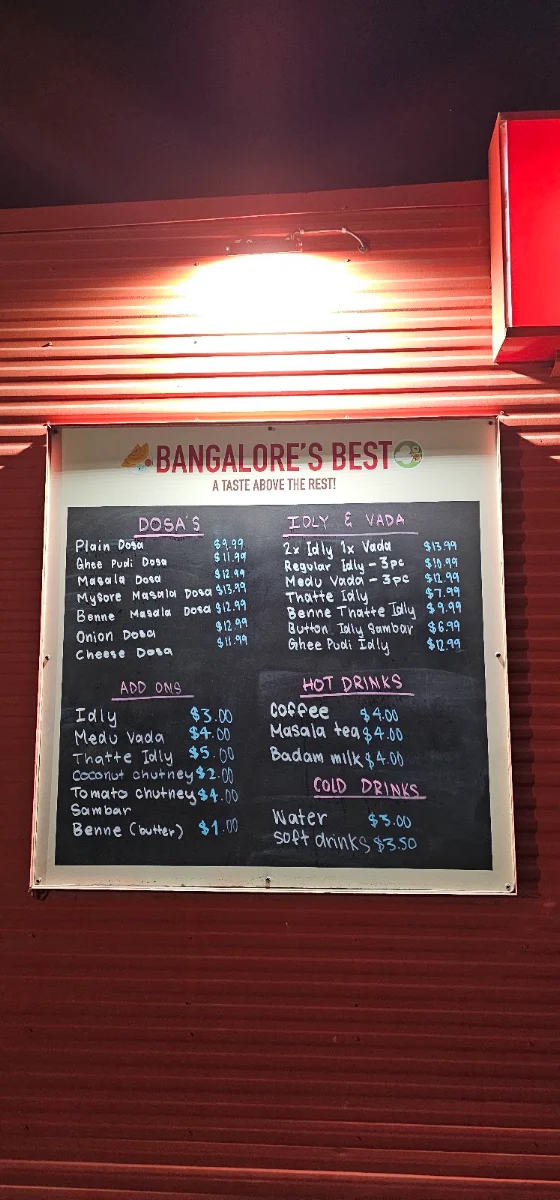 BANGALORE'S BEST
A TASTE ABOVE THE REST!
DOSA'S
Plain Dosa $9.99
Ghee Pudi Dosa $11.99
Masala Dosa $12.99
Mysore Masala Dosa $13.99
Benne Masala Dosa $12.99
Onion Dosa $12.99
Cheese Dosa $11.99
IDLY & VADA
2x Idly 1x Vada $13.99
Regular Idly - 3pc $10.99
Medu Vada - 3pc $12.99
Thatte Idly $7.99
Benne Thatte Idly $9.99
Button Idly Sambar $6.99
Ghee Pudi Idly $12.99
ADD ONS
Idly $3.00
Medu Vada $4.00
Thatte Idly $5.00
Coconut chutney $2.00
Tomato chutney $4.00
Sambar
Benne (butter) $1.00
HOT DRINKS
Coffee $4.00
Masala tea $4.00
Badam milk $4.00
COLD DRINKS
Water $3.00
Soft drinks $3.50